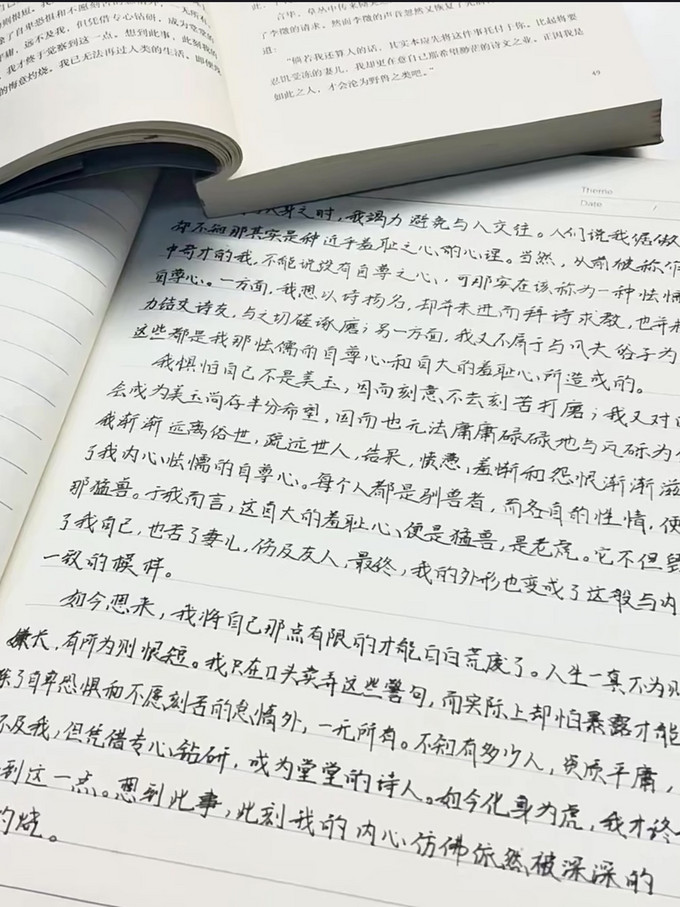 除了自卑恐惧和不愿刻苦的怠惰外，一无所有
平庸，远不及我，但凭借专心钻研，成为堂堂的
，我才终于觉察到这一点。想到此事，此刻我的
的悔意灼烧。我已无法再过人类的生活，即便现
言毕，草丛中传来
了李徵的请求，然而李徵的声音忽然又恢复了
道：
“倘若我还算人的话，其实本应先将这件事托付于你。比起将要
忍饥受冻的妻儿，我却更在意自己那希望渺茫的诗文之业，正因我是
如此之人，才会沦为野兽之类吧。”
49
Theme
Date
之时，我竭力避免与人交往。人们说我倨傲
却不知那其实是种近乎羞耻之心的心理。当然，从前被称作
中奇才的我，不能说没有自尊之心，可那实在该称为一种怯懦
自尊心。一方面，我想以诗扬名，却并未进而拜诗求教，也并未
力结交诗友，与之切磋琢磨；另一方面，我又不屑于与凡夫俗子为
这些都是我那怯懦的自尊心和自大的羞耻心所造成的。
我惧怕自己不是美玉，因而刻意不去刻苦打磨；我又对
会成为美玉尚存半分希望，因而也无法庸庸碌碌地与瓦砾为
我渐渐远离俗世，疏远世人，结果，愤懑，羞惭和怨恨渐渐滋
了我内心怯懦的自尊心。每个人都是驯兽者，而各自的性情，便
那猛兽。于我而言，这自大的羞耻心便是猛兽，是老虎。它不但毁
了我自己，也苦了妻儿，伤及友人，最终，我的外形也变成了这般与内
一致的模样。
如今想来，我将自己那点有限的才能白白荒废了。人生一真不为则
嫌长，有所为则恨短。我只在口头卖弄这些警句，而实际上却怕暴露才能
除了自卑恐惧和不愿刻苦的怠惰外，一无所有。不知有多少人，资质平庸，
不及我，但凭借专心钻研，成为堂堂的诗人。如今化身为虎，我才终
到这一点。想到此事，此刻我的内心仿佛依然被深深的
灼烧。